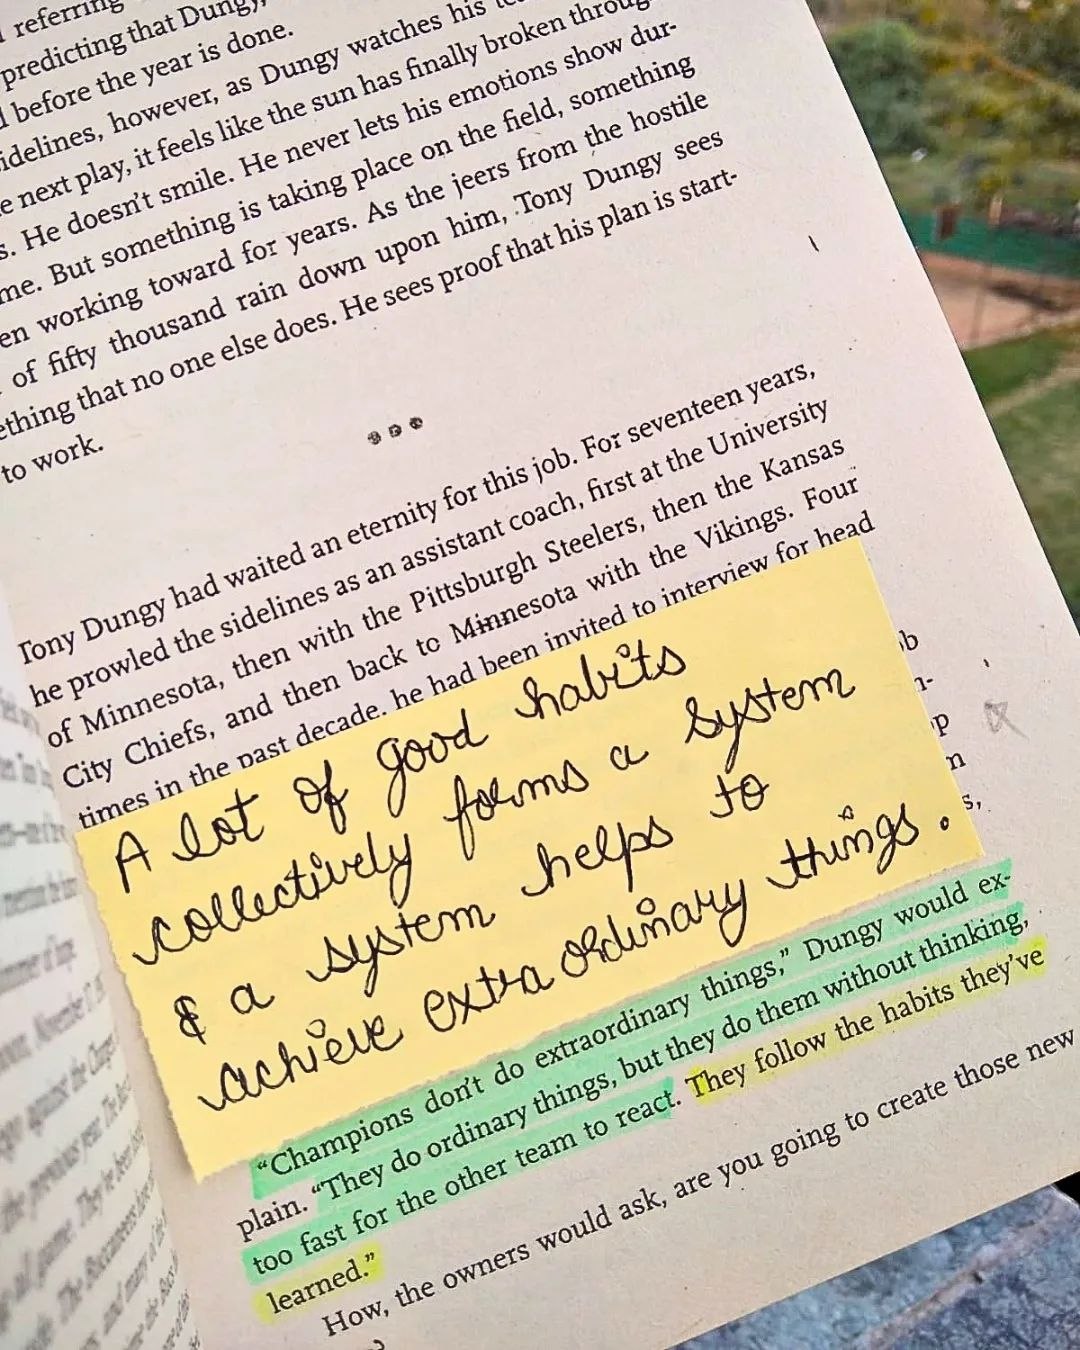 referring
predicting that Dungy,
before the year is done.
idelines, however, as Dungy watches his
next play, it feels like the sun has finally broken throug
s. He doesn't smile. He never lets his emotions show dur-
me. But something is taking place on the field, something
en working toward for years. As the jeers from the hostile
of fifty thousand rain down upon him, Tony Dungy sees
ething that no one else does. He sees proof that his plan is start-
to work.
Tony Dungy had waited an eternity for this job. For seventeen years,
he prowled the sidelines as an assistant coach, first at the University
of Minnesota, then with the Pittsburgh Steelers, then the Kansas
City Chiefs, and then back to Minnesota with the Vikings. Four
times in the past decade, he had been invited to interview for head
A lot of good habits
collectively forms a system
& a system helps to
achieve extra ordinary things.
"Champions don't do extraordinary things," Dungy would ex-
plain. "They do ordinary things, but they do them without thinking,
too fast for the other team to react. They follow the habits they've
learned."
How, the owners would ask, are you going to create those new